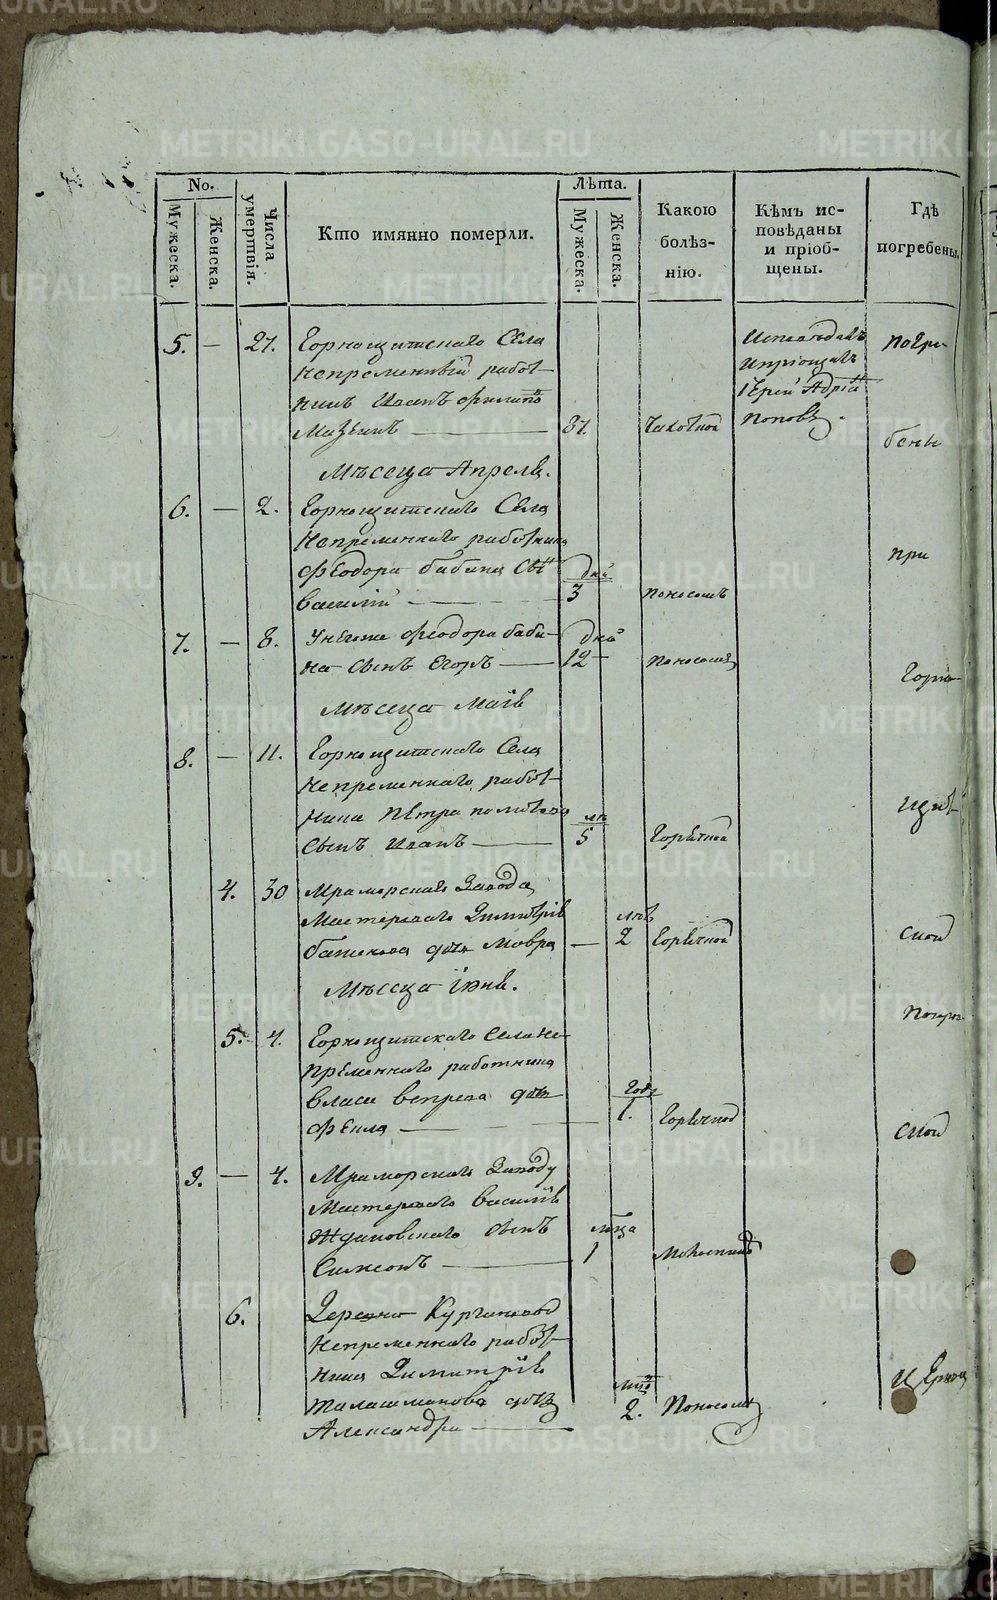 METRIKI.GASO-URAL.RU
No.
Мужеска.
Женска.
Числа умертвія.
Кто имянно померли.
Лѣта.
Мужеска.
Женска.
Какою болѣз-нію.
Кѣмъ ис-повѣданы и пріоб-щены.
Гдѣ погребены.
5. — 27. Горнощитскаго Села
Непременный работ-
никъ Иванъ Филипо
87. Чахоткой
Исповѣдалъ
и пріощалъ
Іерей Адріа
Поповъ.
Мѣсеца Апреля.
6. — 2. Горнощитскаго Села
Непременнаго работника
Феодора бабина Сы
Василій — дне 3 поносомъ
7. — 8. Унегоже Феодора баби-
на Сынъ Егоръ — дней 12 — поносомъ
Мѣсеца Маія
8. — 11. Горнощитскаго Села
Непременнаго работ-
ника Петра
Сынъ Иванъ — лѣ 5 Горячкой
4. 30 Мраморскаго Завода
Мастероваго Димитрія
дочь Мавра — лѣт 2 Горячкой
Мѣсеца Іюня.
5. 4. Горнощитскаго Села Не-
пременнаго работника
Власа дочь
Фекла — годъ 1. Горячкой
9. — 4. Мраморскаго Заводу
Мастероваго Василія
Ждановскаго Сынъ
Симеонъ — мѣца 1
6. Деревни Курганово
Непременнаго работ-
ника Димитрія
Талашманова дочь
Александра — 2. Поносомъ
погре-
бены
при
Горно
щит
ской
ской
Церкви